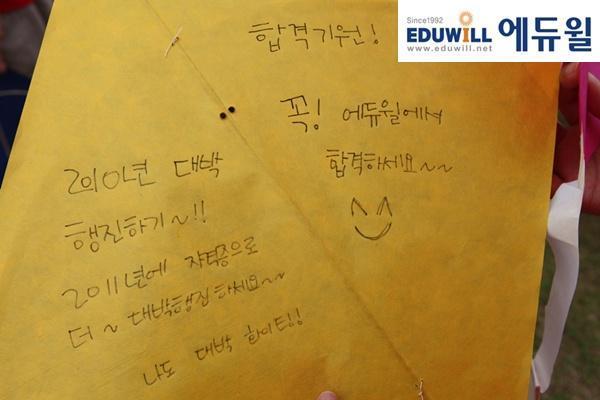 Since1992
EDUWILL 에듀윌
www.eduwill.net
합격기원!
꼭! 에듀윌에서
합격하세요~~
2010년 대박
행진하기~!!
2011년에 자격증으로
더~ 대박행진하세요~~
나도 대박 화이팅!!